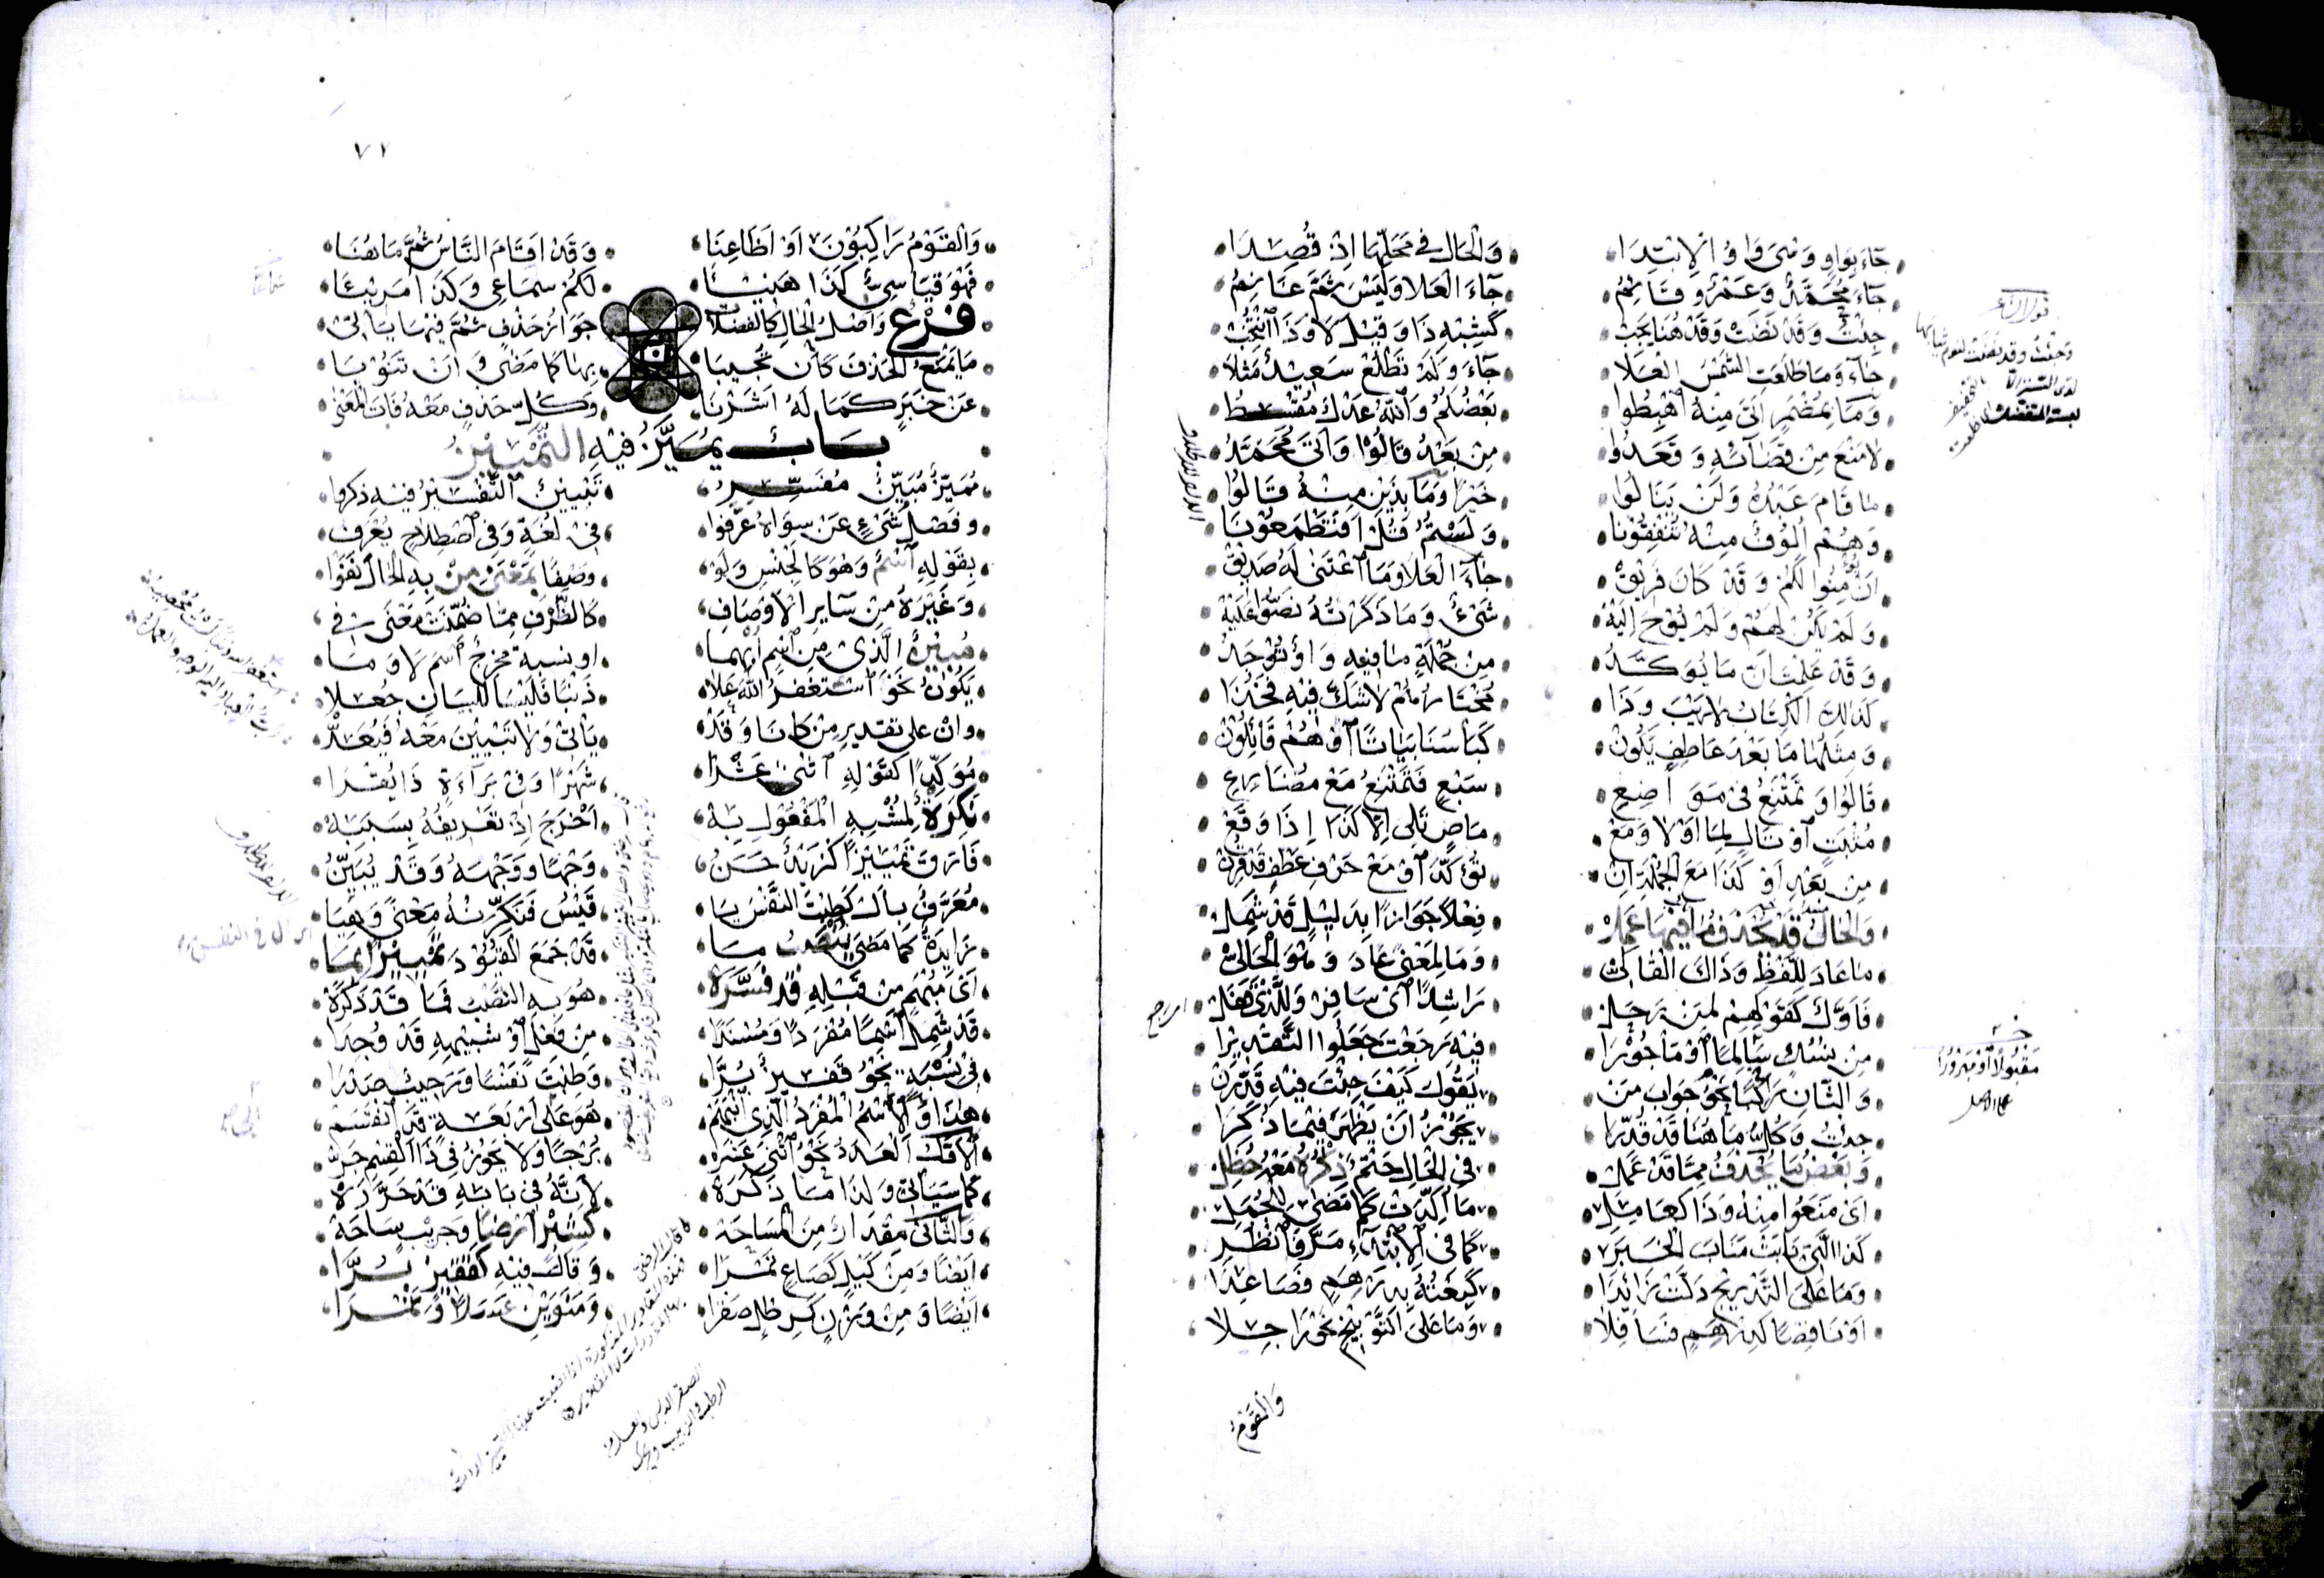 جَاءَ بِوَاوٍ وَسِوَى وَاوُ الِابْتِدَا • وَالْحَالُ فِي مَحَلِّهَا إِذْ قُصِدَا
جَاءَ مُحَمَّدٌ وَعَمْرٌو قَائِمُ • جَاءَ الْعَلَا وَلَيْسَ ثَمَّ غَانِمُ
جِئْتُ وَقَدْ نَضَتْ وَقَدْ هُنَا يَجِبْ • كَشِبْهِ ذَا وَقِيلَ لَا وَذَا انْتُخِبْ
جَاءَ وَمَا طَلَعَتِ الشَّمْسُ الْعَلَا • جَاءَ وَلَمْ تَطْلُعْ سَعِيدٌ مَثَلَا
وَمَا بِمُضْمَرٍ أَتَى مِنْهُ اهْبِطُوا • بَعْضُكُمُ وَاللَّهُ عَدْلٌ مُقْسِطُ
لَا مَنْعَ مِنْ قَضَائِهِ وَقَعَدُوا • مِنْ بَعْدُ قَالُوا وَأَتَى مُحَمَّدُ
مَا قَامَ عَبْدُهُ وَلَنْ يَنَالُوا • خَيْرًا وَمَا بِذَيْنِ مِنْهُ قَالُوا
وَهُمْ أُلُوفٌ مِنْهُ تُنْفِقُونَا • وَلَسْتُمُ قُلْ أَفَتَطْمَعُونَا
أَنْ يُؤْمِنُوا لَكُمْ وَقَدْ كَانَ فَرِيقْ • جَاءَ الْعَلَا وَمَا اعْتَنَى لَهُ صَدِيقْ
وَلَمْ يَكُنْ لَهُمْ وَلَمْ يُوحَ إِلَيْهْ • شَيْءٌ وَمَا ذَكَرْتُهُ نَصُّوا عَلَيْهْ
وَقَدْ عَلِمْتَ أَنَّ مَا يُؤَكَّدُ • مِنْ جُمْلَةٍ مَا فِيهِ وَاوٌ تُوجَدُ
كَذَلِكَ الْكِتَابُ لَا رَيْبَ وَذَا • مُخْتَارُهُمْ لَا شَكَّ فِيهِ فَخُذَا
وَمِثْلُهَا مَا بَعْدَ عَاطِفٍ يَكُونْ • كَبَأْسُنَا بَيَاتًا أَوْ هُمْ قَائِلُونْ
قَالُوا وَتَمْتَنِعُ فِي مَوَاضِعِ • سَبْعٍ فَتَمْتَنِعُ مَعْ مُضَارِعِ
مُثْبَتٍ أَوْ تَالٍ لِمَا أَوْ لَا وَمَعْ • مَاضٍ تَلَى إِلَّا كَذَا إِذَا وَقَعْ
مِنْ بَعْدِ أَوْ كَذَا مَعَ الْجُمْلَةِ إِنْ • تُؤَكَّدُ أَوْ مَعْ حَرْفِ عَطْفٍ قَدْ قُرِنْ
وَالْحَالُ قَدْ يُحْذَفُ مَا فِيهَا عَمِلْ • فِعْلًا جَوَازًا بِدَلِيلٍ قَدْ شَمِلْ
مَا عَادَ لِلَّفْظِ وَذَاكَ الْقَالِي • وَمَا لِمَعْنًى عَادَ وَهْوَ الْحَالِي
فَأَوَّلٌ كَقَوْلِهِمْ لِمَنْ رَحَلْ • رَاشِدًا أَيْ سَافِرْ وَلِلَّذِي قَفَلْ
مِنْ نُسُكٍ سَالِمًا أَوْ مَأْجُورَا • فِيهِ رَجَعْتَ جَعَلُوا التَّقْدِيرَا
وَالثَّانِ رَاكِبًا نَحْوَ جَوَابِ مَنْ • يَقُولُ كَيْفَ جِئْتَ فِيهِ قَدِّرَنْ
جِئْتُ وَكُلُّ مَا هُنَا قَدْ قُدِّرَا • يَجُوزُ أَنْ يَظْهَرَ فِيمَا ذُكِرَا
وَبَعْضُ مَا يُحْذَفُ مِمَّا قَدْ عَمِلْ • فِي الْحَالِ حَتْمٌ ذِكْرُهُ مَعْهُ حُظِلْ
أَيْ مَنَعُوا مِنْهُ وَذَا كَعَامِلِ • مَا أَكَّدَتْ كَمَا مَضَى لِلْجُمَلِ
كَذَا الَّتِي نَابَتْ مَنَابَ الْخَبَرِ • كَمَا فِي الِابْتِدَاءِ مَرَّ فَانْظُرِ
وَمَا عَلَى التَّدْرِيجِ دَلَّتْ زَائِدَا • كَبِعْتُهُ بِدِرْهَمٍ فَصَاعِدَا
أَوْ نَاقِصًا كَدِرْهَمٍ فَسَافِلَا • وَمَا عَلَى التَّوْبِيخِ نَحْوُ رَاجِلَا
وَالْقَوْمُ
٧٢
وَالْقَوْمُ رَاكِبُونَ أَوْ أَظَاعِنَا • وَقَدْ أَقَامَ النَّاسُ ثُمَّ مَا هُنَا
فَهْوَ قِيَاسِيٌّ كَذَا هَنِيئَا • لَكُمْ سَمَاعِي وَكَذَا مَرِيئَا
فَرْعٌ وَأَصْلُ الْحَالِ كَالْفَضْلَاتِ • جَوَازُ حَذْفٍ ثُمَّ فِيهَا يَأْتِي
مَا يَمْنَعُ الْحَذْفَ كَأَنْ تُجِيبَا • بِهَا كَمَا مَضَى وَأَنْ تَنُوبَا
عَنْ خَبَرٍ كَمَا لَهُ أَشَرْنَا • وَكُلُّ حَذْفٍ مَعْهُ فَاتَ الْمَعْنَى
بَابٌ يُمَيَّزُ فِيهِ التَّمْيِيزُ
مُمَيِّزٌ مُبَيِّنٌ مُفَسِّرُ • تَبْيِينٌ التَّفْسِيرُ فِيهِ ذَكَرُوا
وَفَصْلُ شَيْءٍ عَنْ سِوَاهُ عَرَّفُوا • فِي لُغَةٍ وَفِي اصْطِلَاحٍ يُعْرَفُ
بِقَوْلِهِ اسْمٌ وَهْوَ كَالْجِنْسِ وَلَوْ • وَصْفًا بِمَعْنَى مِنْ بِهِ الْحَالَ نَفَوْا
وَغَيْرَهُ مِنْ سَائِرِ الْأَوْصَافِ • كَالظَّرْفِ مِمَّا ضُمِّنَتْ مَعْنَى فِي
مُبِيْنٌ الَّذِي مِنِ اسْمٍ أُبْهِمَا • أَوْ نِسْبَةٍ مُخْرِجُ اسْمِ لَا وَمَا
يَكُونُ نَحْوَ أَسْتَغْفِرُ اللَّهَ عَلَا • ذَنْبًا فَلَيْسَا لِلْبَيَانِ جُعِلَا
وَإِنْ عَلَى تَقْدِيرِ مِنْ كَانَا وَقَدْ • يَأْتِي وَلَا تَبْيِينَ مَعْهُ فَيُعَدّْ
مُؤَكِّدًا كَقَوْلِهِ اثْنَى عَشْرَا • شَهْرًا وَفِي بَرَاءَةٍ ذَا يُقْرَا
نَكِرَةٌ لِمُشْبِهِ الْمَفْعُولِ بِهْ • أَخْرَجَ إِذْ تَعْرِيفُهُ بِسَبَبِهْ
فَارَقَ تَمْيِيزًا كَزَيْدٌ حَسَنُ • وَجْهًا وَوَجْهَهُ وَقَدْ يُبَيَّنُ
مُعَرَّفٌ بِأَلْ كَطِبْتَ النَّفْسَ يَا • قَيْسُ فَنَكِّرَنْهُ مَعْنًى وَهِيَا
زَائِدَةٌ كَمَا مَضَى يُنْصَبُ مَا • قَدْ جَمَعَ الْقُيُودَ تَمْيِيزًا بِمَا
أَيْ مُبْهَمٍ مِنْ قَبْلِهِ قَدْ فَسَّرَهْ • هُوَ بِهِ النَّصْبُ فَمَا قَدْ ذَكَرَهْ
قَدْ شَمِلَ اسْمًا مُفْرَدًا وَمُسْنَدَا • مِنْ فِعْلٍ أَوْ شَبِيهِهِ قَدْ وُجِدَا
فِي نِسْبَةٍ نَحْوُ قَفِيزٌ بُرَّا • وَطِبْتَ نَفْسًا وَرَحِيبٌ صَدْرَا
هَذَا وَالِاسْمُ الْمُفْرَدُ الَّذِي انْبَهَمْ • هُوَ عَلَى أَرْبَعَةٍ قَدِ انْقَسَمْ
الْأَوَّلُ الْعَدَدُ نَحْوُ اثْنَى عَشَرْ • بُرْجًا وَلَا يَجُوزُ فِي ذَا الْقِسْمِ جَرّْ
كَمَا سَيَأْتِي وَلِذَا مَا ذَكَرَهْ • لِأَنَّهُ فِي بَابِهِ قَدْ حَرَّرَهْ
وَالثَّانِي مِقْدَارٌ مِنَ الْمَسَاحَةْ • كَشِبْرٍ أَرْضًا وَجَرِيبٍ سَاحَةْ
أَيْضًا وَمِنْ كَيْلٍ كَصَاعٍ تَمْرَا • وَقَالَ فِيهِ كَقَفِيزٍ بُرَّا
أَيْضًا وَمِنْ وَزْنٍ كَرِطْلٍ صَفْرَا • وَمَنَوَيْنِ عَسَلًا وَتَمْرَا